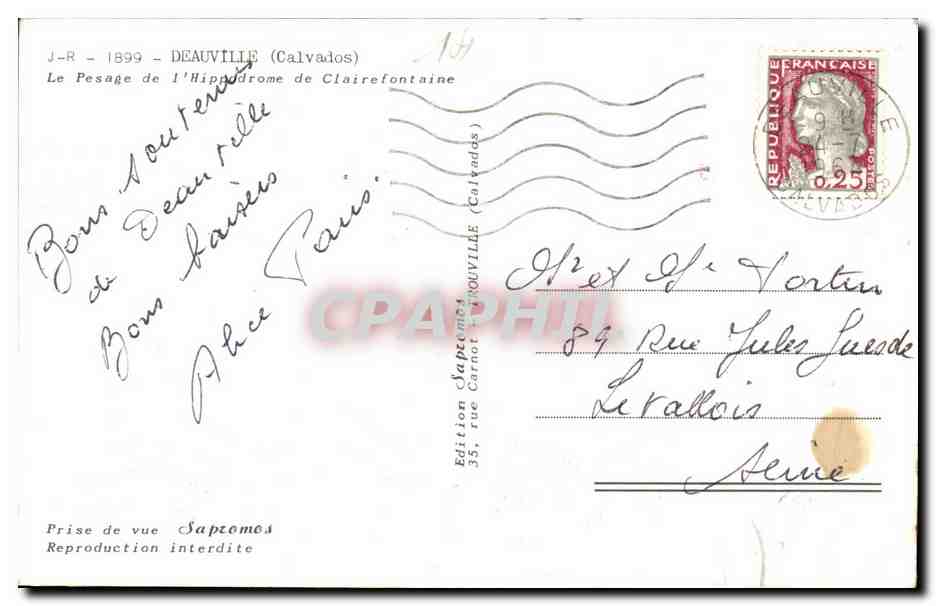 J-R - 1899 - DEAUVILLE (Calvados)
Le Pesage de l'Hippodrome de Clairefontaine
Bons souvenirs
de Deauville
Bons baisers
Alice Paris.
Prise de vue Sapromos
Reproduction interdite
Edition Sapromos
35, rue Carnot - TROUVILLE (Calvados)
REPUBLIQUE
FRANÇAISE
POSTES
0,25
CALVADOS
Mr et Me Fortin
89 Rue Jules Guesde
Levallois
Seine
CPAPHIL